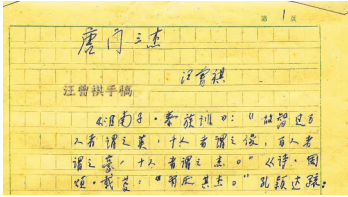 第1页
唐门三杰
汪曾祺
汪曾祺手稿
《淮南子·泰族训》：“故智过万
人者谓之英，千人者谓之俊，百人者
谓之豪，十人者谓之杰。”《诗·周
颂·载芟》：“有厌其杰。”孔颖达疏：